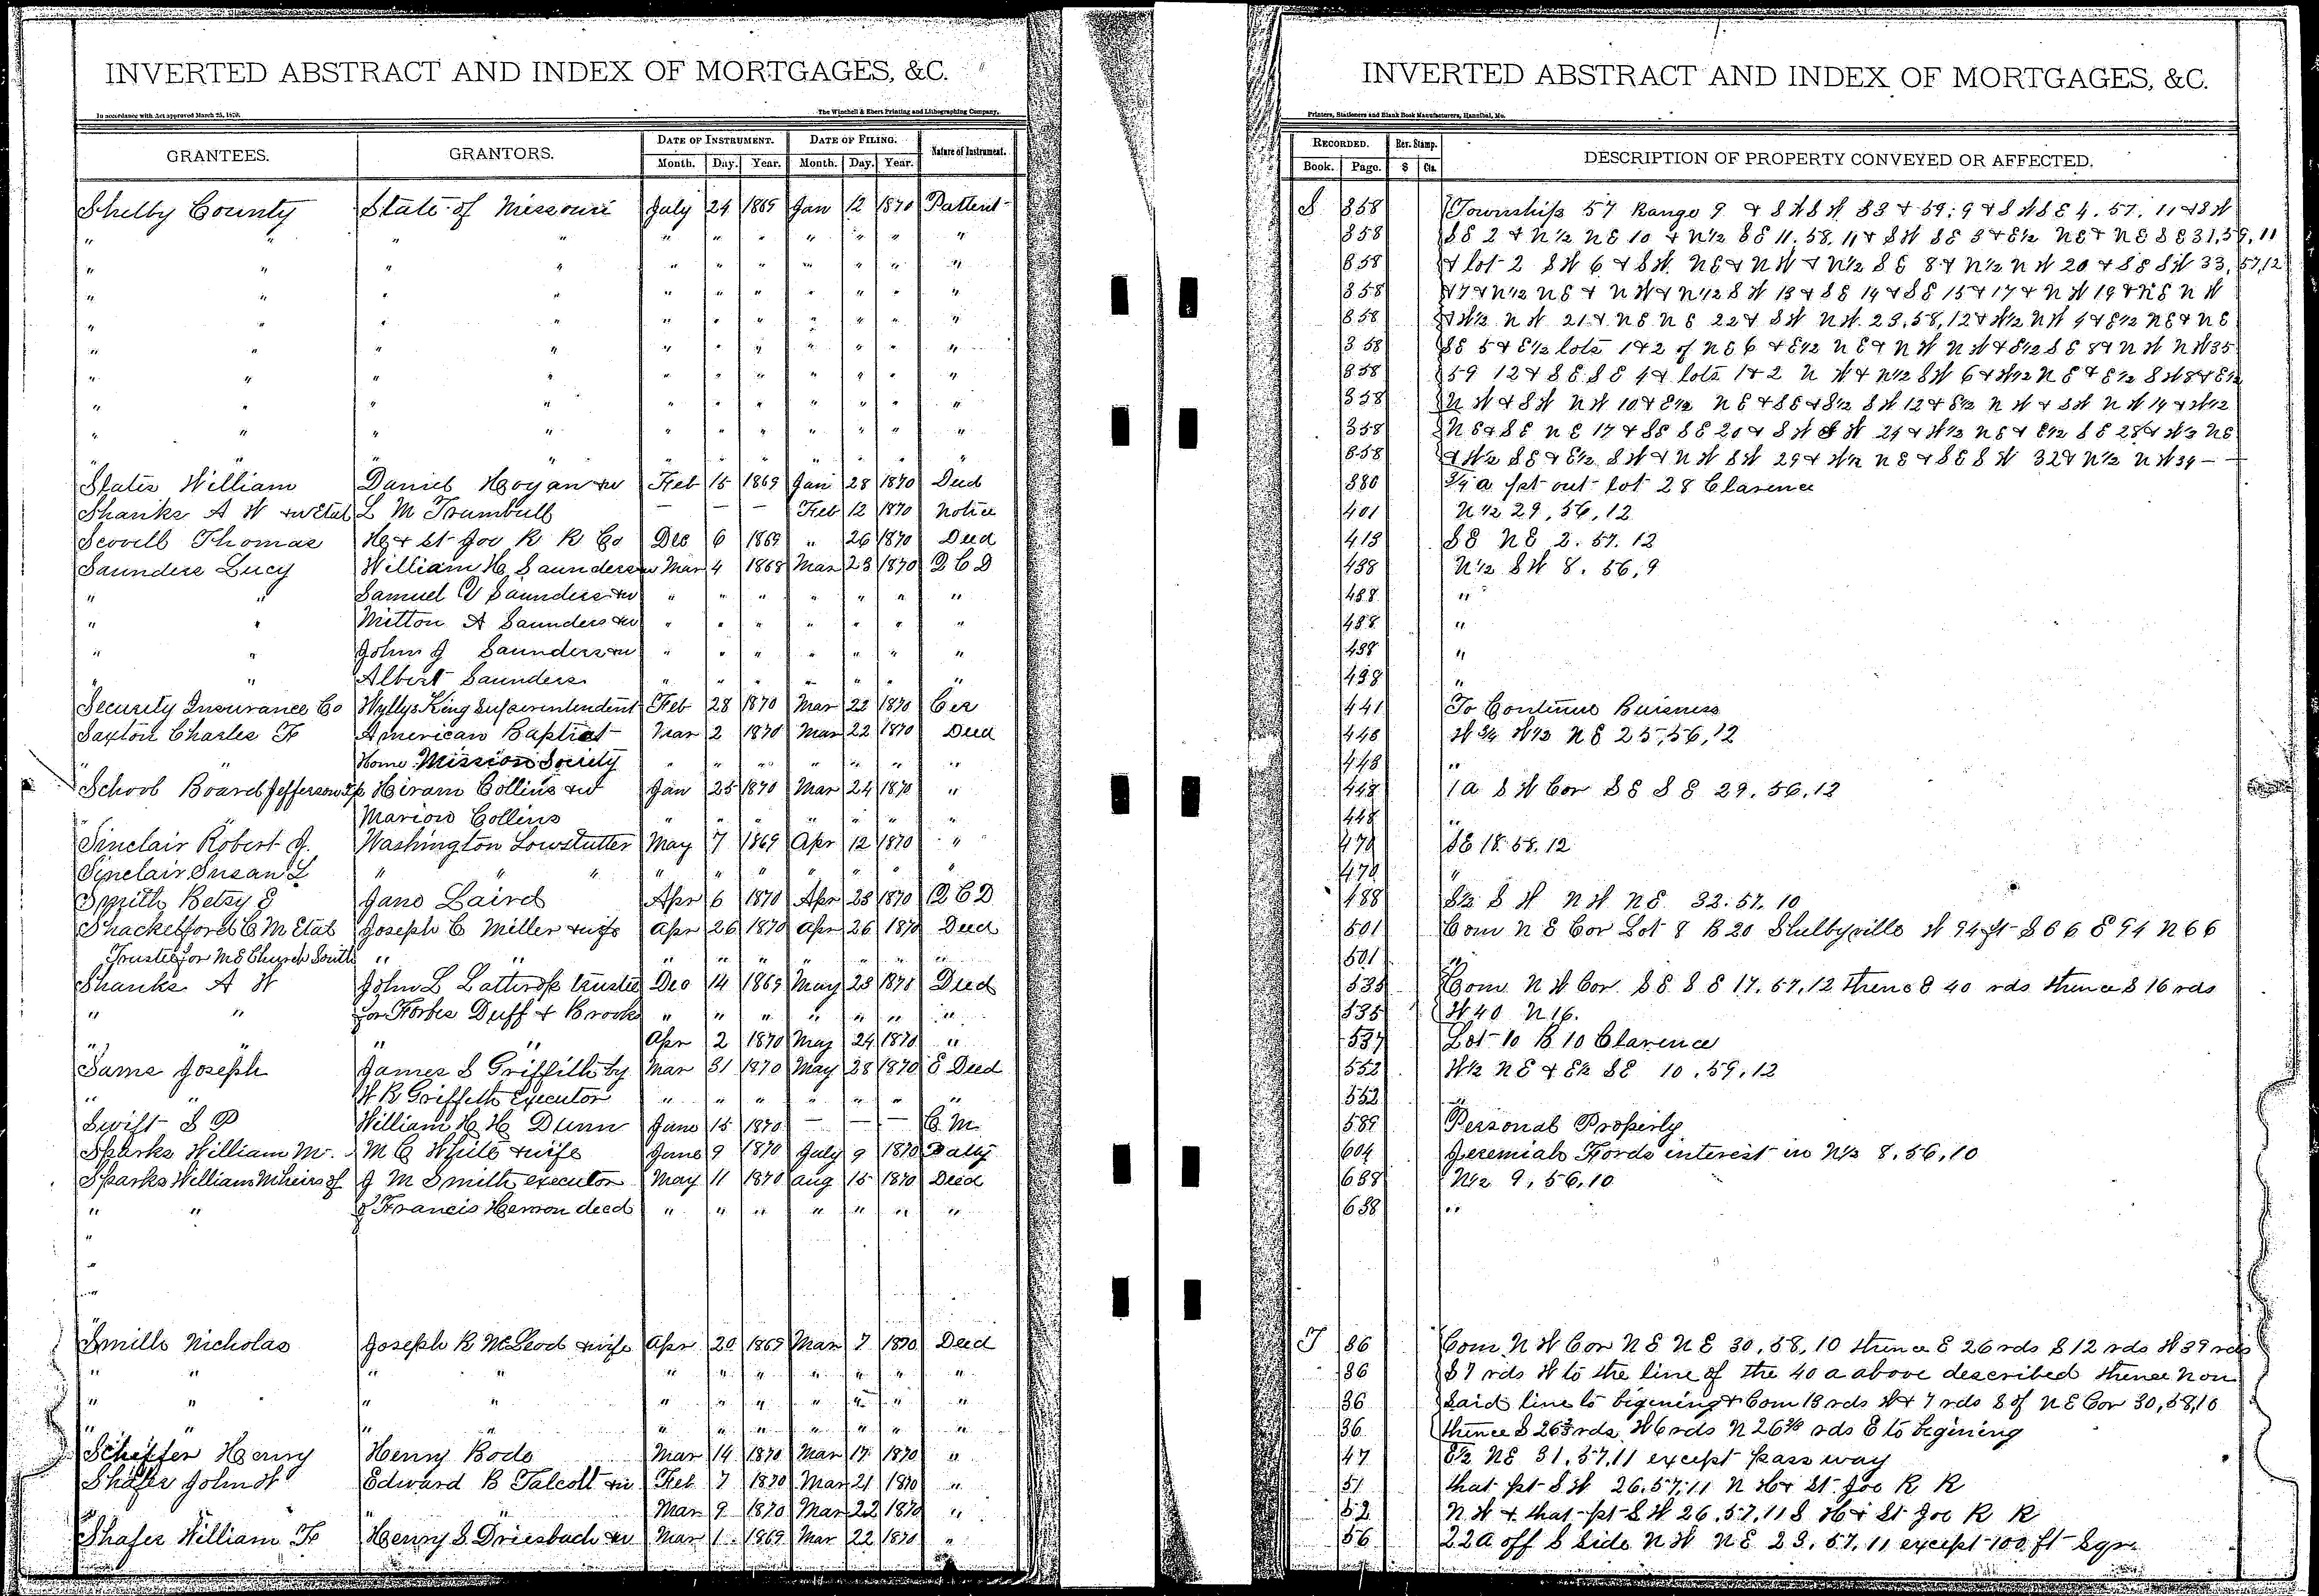 INVERTED ABSTRACT AND INDEX OF MORTGAGES, &C.
In accordance with Act approved March 25, 1870. The Winchell & Ebert Printing and Lithographing Company,
GRANTEES. GRANTORS. DATE OF INSTRUMENT. DATE OF FILING. Nature of Instrument.
Month. Day. Year. Month. Day. Year.
Shelby County State of Missouri July 24 1869 Jan 12 1870 Pattent
" " " " " " " " " " "
" " " " " " " " " " "
" " " " " " " " " " "
" " " " " " " " " " "
" " " " " " " " " " "
" " " " " " " " " " "
" " " " " " " " " " "
" " " " " " " " " " "
" " " " " " " " " " "
States William Daniel Hogan & w Feb 15 1869 Jan 28 1870 Deed
Shanks A W & w Etal L M Trumbull — — — Feb 12 1870 Notice
Scovell Thomas H & St Joe R R Co Dec 6 1869 " 26 1870 Deed
Saunders Lucy William H Saunders & w Mar 4 1868 Mar 23 1870 Q C D
" " Samuel Saunders & w " " " " " " "
" " Mitton A Saunders & w " " " " " " "
" " John J Saunders & w " " " " " " "
" " Albert Saunders " " " " " " "
Security Insurance Co Wyllys King Superintendent Feb 28 1870 Mar 22 1870 Cer
Saxton Charles F American Baptist Mar 2 1870 Mar 22 1870 Deed
" " Home Mission Society " " " " " " "
School Board Jefferson Tp Hiram Collins & w Jan 25 1870 Mar 24 1870 "
" " Marion Collins " " " " " " "
Sinclair Robert J. Washington Lowstutter May 7 1869 Apr 12 1870 "
Sinclair Susan L " " " " " " " " "
Smith Betsy E Jane Laird Apr 6 1870 Apr 23 1870 Q C D
Shackelford C M Etal Joseph C Miller & wife Apr 26 1870 Apr 26 1870 Deed
Trustee for M E Church South " " " " " " " " "
Shanks A W John L Lathrop trustee Dec 14 1869 May 23 1870 Deed
" " for Forbes Duff & Brooks " " " " " " "
" " " " Apr 2 1870 May 24 1870 "
Sams Joseph James S Griffith by Mar 31 1870 May 28 1870 E Deed
" " W R Griffeth Executor " " " " " " "
Swift S P William H H Dunn June 15 1870 — — — C. M.
Sparks William M. M C White & wife June 9 1870 July 9 1870 D a l y
Sparks William M heirs of J M Smith executor May 11 1870 Aug 15 1870 Deed
" " of Francis Herron decd " " " " " " "
"
"
"
"
Smills Nicholas Joseph R McLeod & wife Apr 20 1869 Mar 7 1870 Deed
" " " " " " " " " " "
" " " " " " " " " " "
" " " " " " " " " " "
Scheffer Henry Henry Bode Mar 14 1870 Mar 17 1870 "
Shafer John W Edward B Talcott & w Feb 7 1870 Mar 21 1870 "
" " Mar 9 1870 Mar 22 1870 "
Shafer William F Henry S Driesbach & w Mar 1 1869 Mar 22 1870 "
INVERTED ABSTRACT AND INDEX OF MORTGAGES, &C.
Printers, Stationers and Blank Book Manufacturers, Hannibal, Mo.
RECORDED. Rev. Stamp. DESCRIPTION OF PROPERTY CONVEYED OR AFFECTED.
Book. Page. $ Cts.
S 358 Township 57 Range 9 & S W S W 33 & 59. 9 & S W S E 4. 57. 11 & S W
358 S E 2 & N 1/2 N E 10 & N 1/2 S E 11. 58. 11 & S W S E 3 & E 1/2 N E & N E S E 31, 59, 11
358 & lot 2 S W 6 & S W. N E & N W & N 1/2 S E 8 & N 1/2 N W 20 & S E S W 33, 57, 12
358 & 7 & N 1/2 N E & N W & N 1/2 S W 13 & S E 14 & S E 15 & 17 & N W 19 & N E N W
358 & W 1/2 N W 21 & N E N E 22 & S W N W. 23, 58, 12 & W 1/2 N W 4 & E 1/2 N E & N E
358 S E 5 & E 1/2 lots 1 & 2 of N E 6 & E 1/2 N E & N W N W & E 1/2 S E 8 & N W N W 35
358 59 12 & S E S E 4 & lots 1 & 2 N W & N 1/2 S W 6 & W 1/2 N E & E 1/2 S W 8 & E 1/2
358 N W & S W N W 10 & E 1/2 N E & S E & S 1/2 S W 12 & E 1/2 N W & S W N W 14 & W 1/2
358 N E & S E N E 17 & S E S E 20 & S W S W 24 & W 1/2 N E & E 1/2 S E 28 & W 1/2 N E
358 & W 1/2 S E & E 1/2 S W & N W S W 29 & W 1/2 N E & S E S W 32 & N 1/2 N W 34 —
380 3/4 a pt out lot 28 Clarence
401 N 1/2 29, 56, 12
413 S E N E 2. 57. 12
438 N 1/2 S W 8. 56, 9
438 "
438 "
438 "
438 "
441 To Continue Buisness
443 W 3/4 W 1/2 N E 25, 56, 12
443 "
448 1 a S W Cor S E S E 29. 56. 12
448 "
470 S E 18. 58. 12
470 "
488 S 1/2 S W N W N E 32. 57. 10
501 Com N E Cor Lot 8 B 20 Shelbyville W 94 ft S 66 E 94 N 66
501 "
535 Com N W Cor S E S E 17. 57, 12 thence E 40 rds thence S 16 rds
535 W 40 N 16.
537 Lot 10 B 10 Clarence
552 W 1/2 N E & E 1/2 S E 10. 59. 12
552 "
589 Personal Property
604 Jeremiah Fords interest in N 1/2 8, 56, 10
638 N 1/2 9, 56, 10
638 "
T 36 Com N W Cor N E N E 30, 58, 10 thence E 26 rds S 12 rds W 39 rds
36 S 7 rds W to the line of the 40 a above described thence N on
36 said line to bigening & Com 13 rds W & 7 rds S of N E Cor 30, 58, 10
36 thence S 26 2/3 rds, W 6 rds N 26 2/3 rds E to begining
47 E 1/2 N E 31, 57, 11 except pass way
51 that pt S W 26. 57. 11 N H & St Joe R R
52 N W & that pt S W 26. 57. 11 S H & St Joe R R
56 22 a off S Side N W N E 23. 57. 11 except 100 ft Sqr